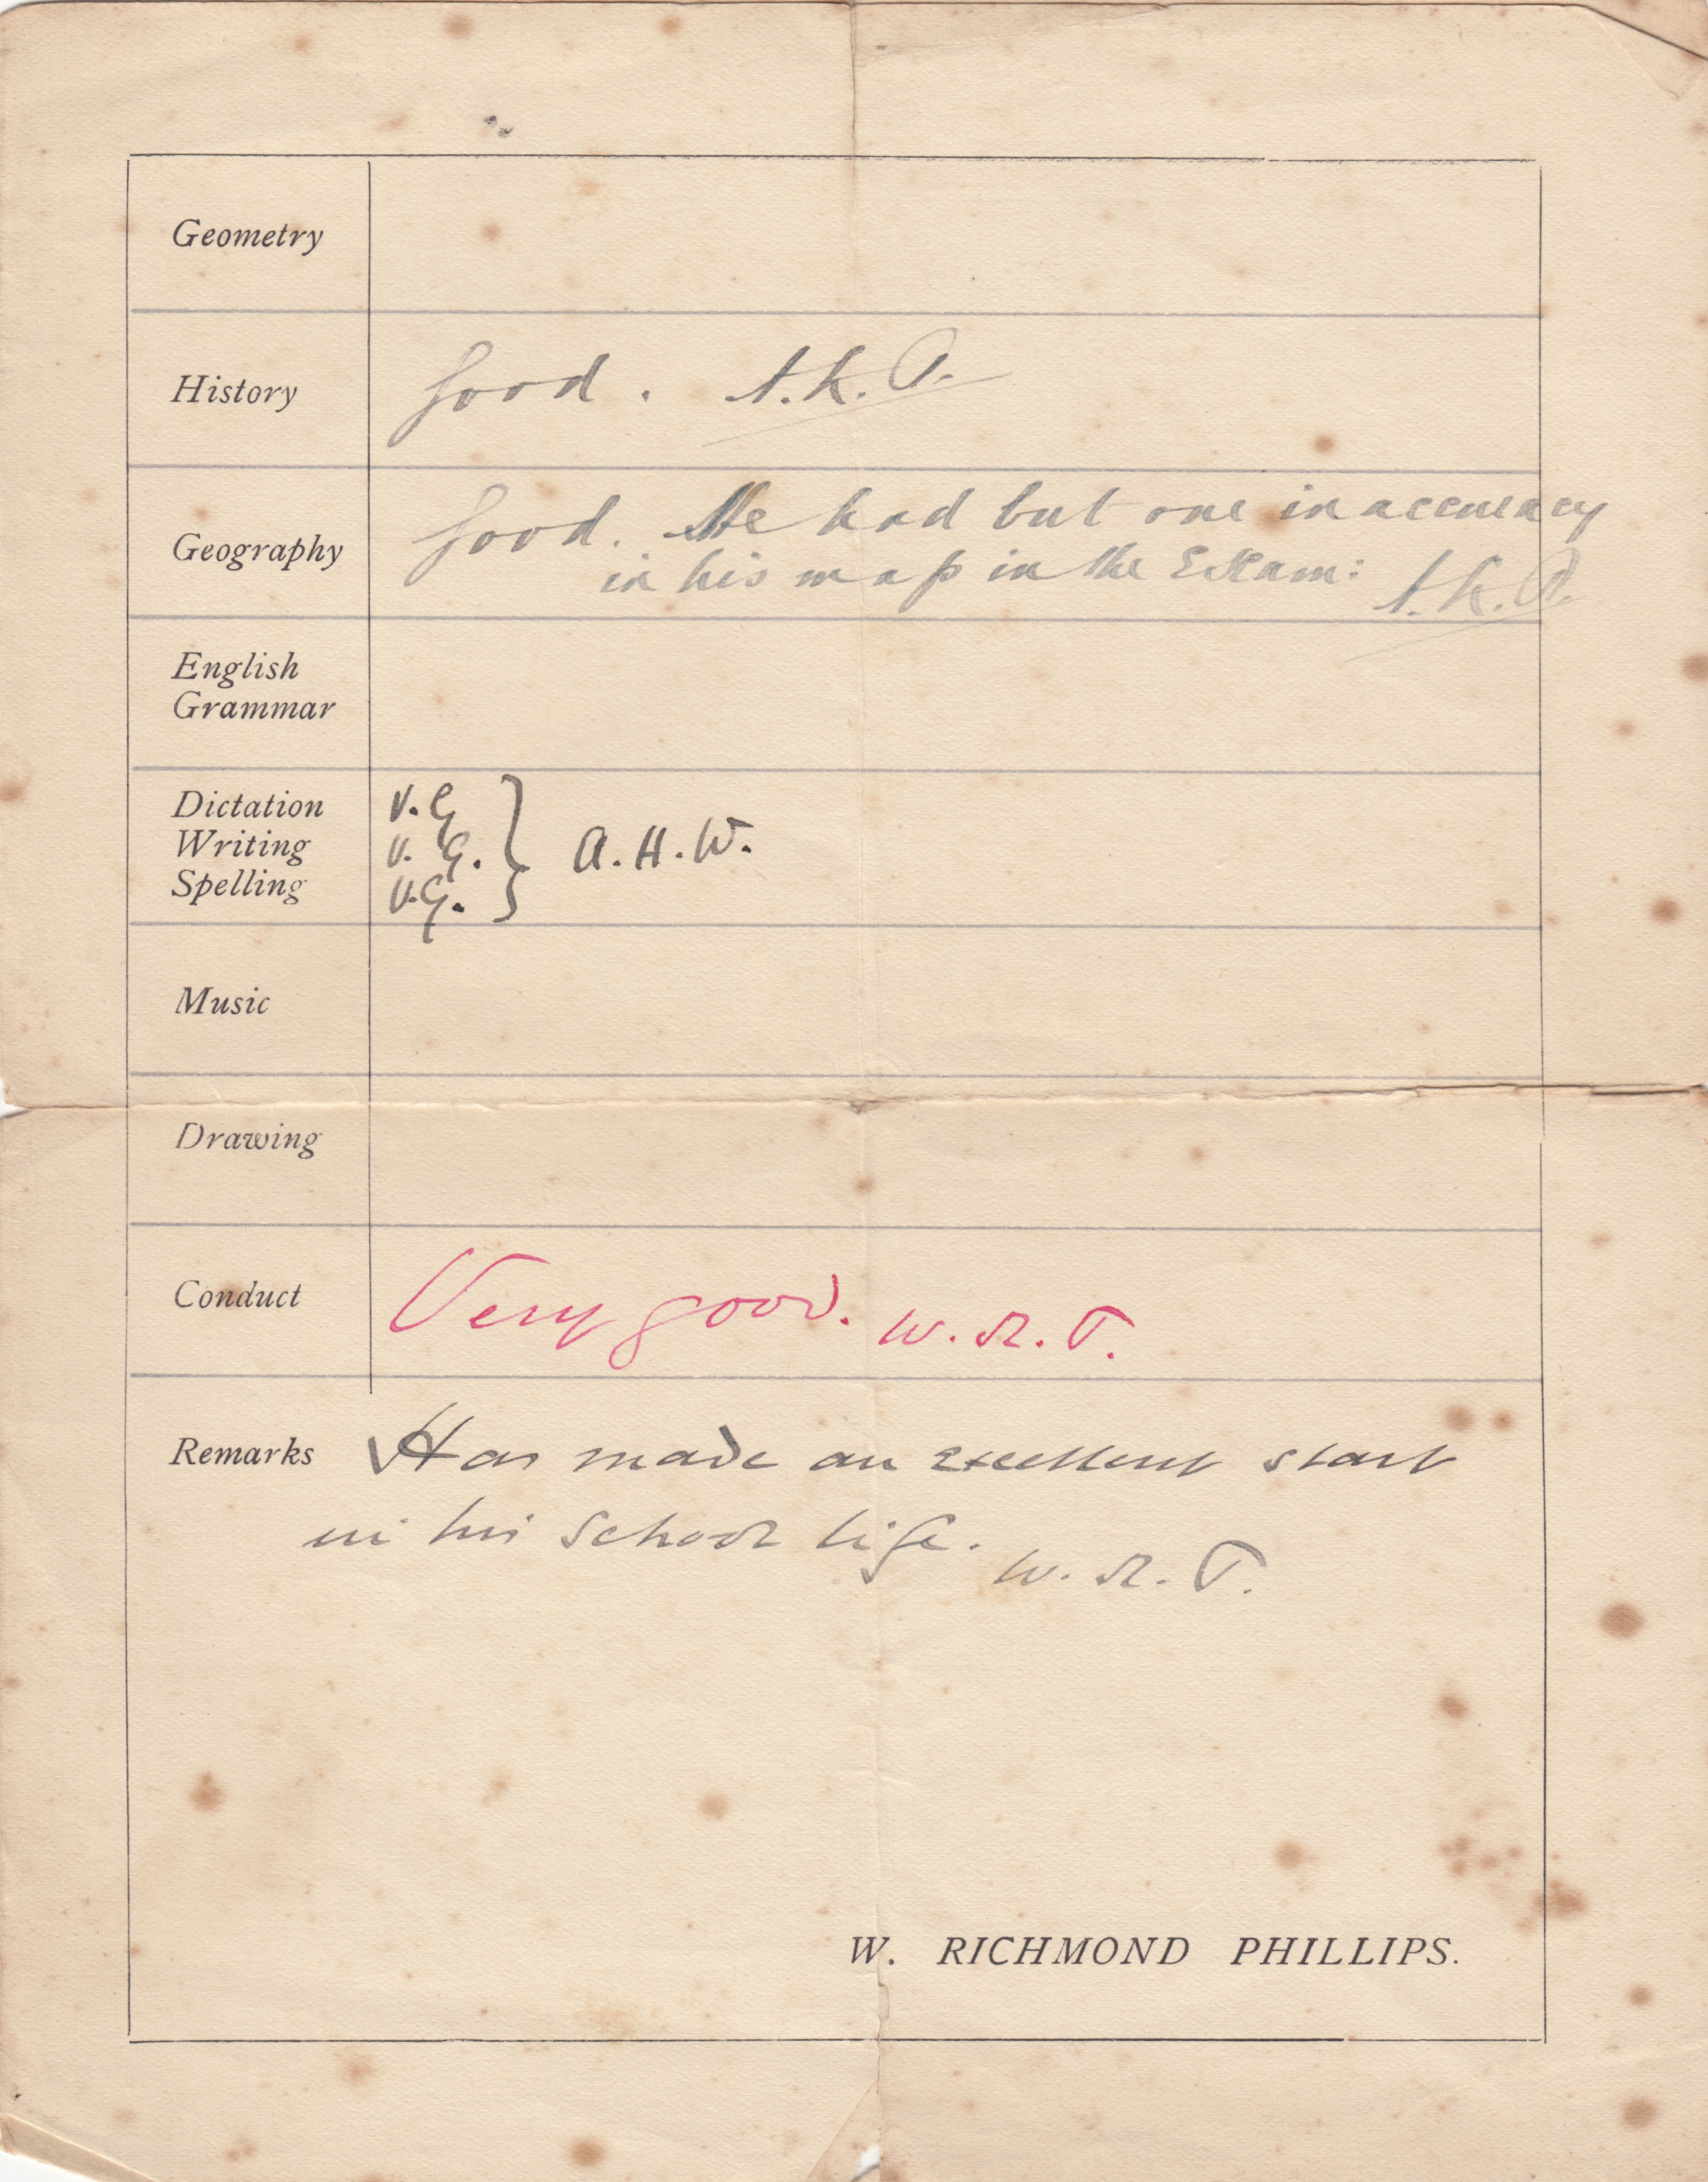 Geometry
History Good. A.K.P.
Geography Good. He had but one inaccuracy
in his map in the Exam: A.K.P.
English
Grammar
Dictation V.G
Writing V.G. } A.H.W.
Spelling V.G.
Music
Drawing
Conduct Very good. W.R.P.
Remarks Has made an excellent start
in his school life.
W.R.P.
W. RICHMOND PHILLIPS.